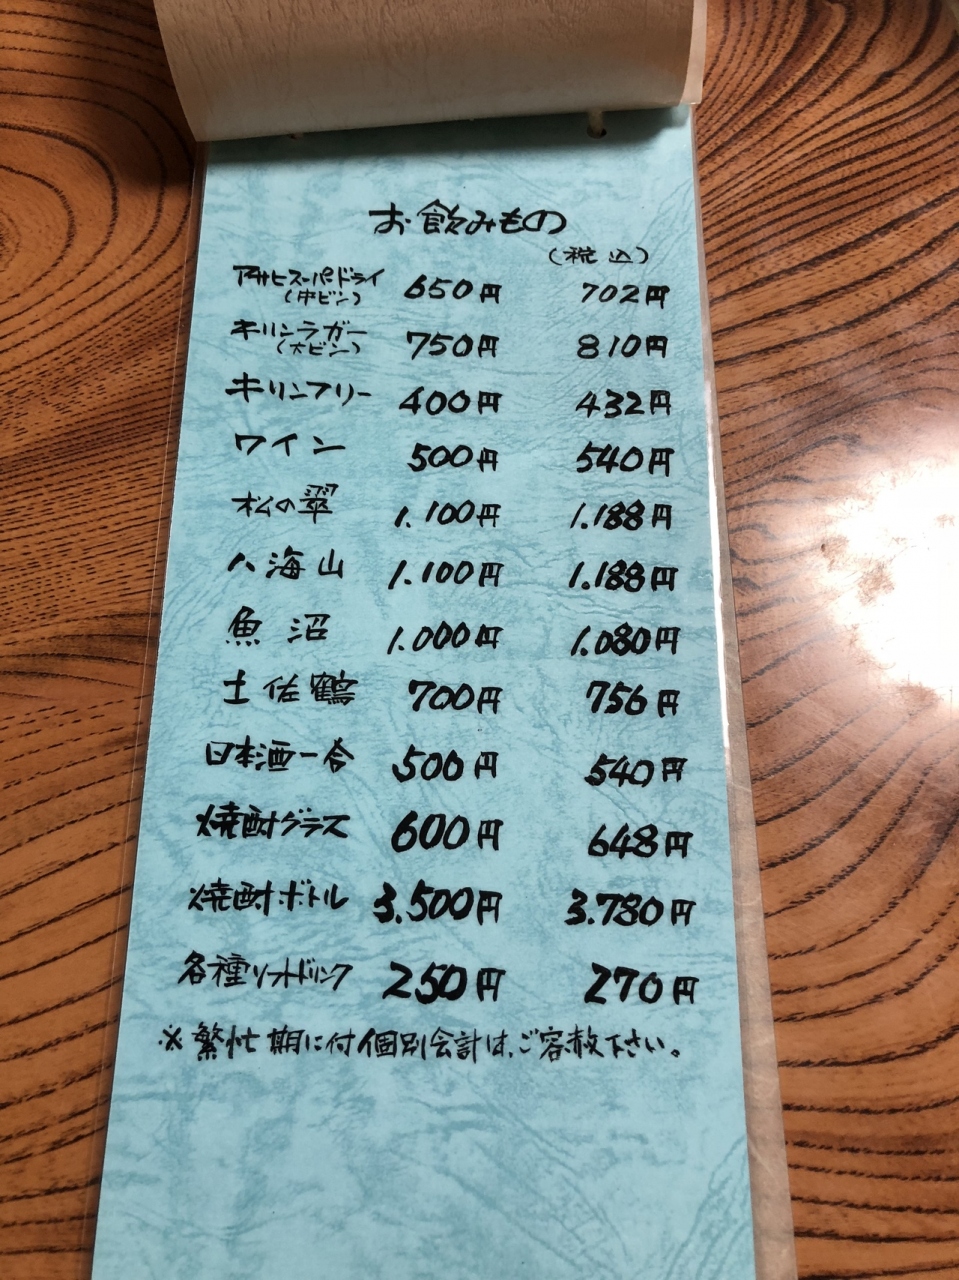 お飲みもの
(税込)
アサヒスーパードライ 650円 702円
(中ビン)
キリンラガー 750円 810円
(大ビン)
キリンフリー 400円 432円
ワイン 500円 540円
松の翠 1.100円 1.188円
八海山 1.100円 1.188円
魚沼 1.000円 1.080円
土佐鶴 700円 756円
日本酒一合 500円 540円
焼酎グラス 600円 648円
焼酎ボトル 3.500円 3.780円
各種ソフトドリンク 250円 270円
※繁忙期に付個別会計は、ご容赦下さい。